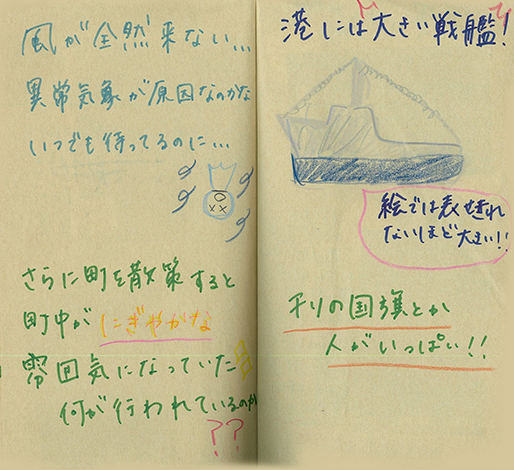 風が全然来ない...
異常気象が原因なのかな
いつでも待ってるのに...
さらに町を散策すると
町中がにぎやかな
雰囲気になっていた
何が行われているのか
??
港には大きい戦艦!
絵では表せきれ
ないほど大きい!!
チリの国旗とか
人がいっぱい!!